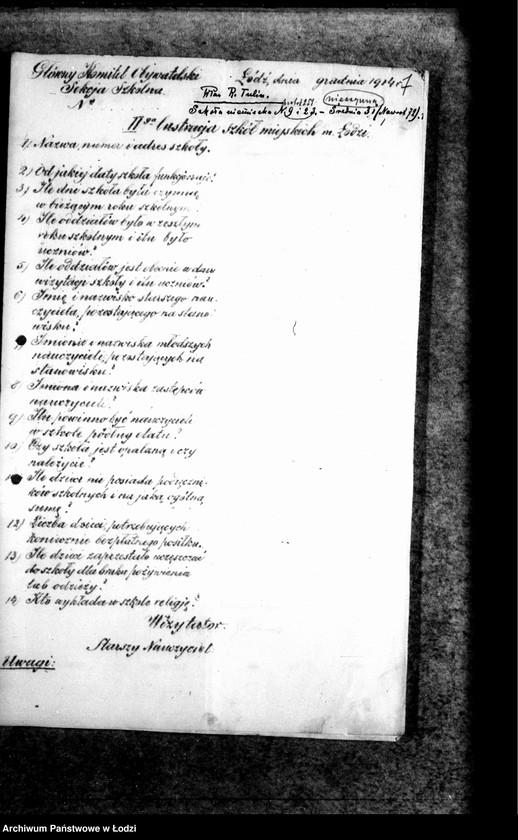 Główny Komitet Obywatelski Łódź, dnia grudnia 1914 r. 7
Sekcja Szkolna.
№
R. Tulin. nieczynna
Szkoła niemiecka № 9 i 22 - Średnia 31 /Nawrot 79/.
IIga lustracja szkół miejskich m. Łodzi.
1) Nazwa, numer i adres szkoły.
2) Od jakiej daty szkoła funkcjonuje?
3) Ile dni szkoła była czynną
w bieżącym roku szkolnym.
4) Ile oddziałów było w zeszłym
roku szkolnym i ilu było
uczniów?
5) Ile oddziałów jest obecnie w dniu
wizytacji szkoły i ilu uczniów?
6) Imię i nazwisko starszego nau-
czyciela, pozostającego na stano-
wisku?
7) Imiona i nazwiska młodszych
nauczycieli, pozostających na
stanowisku?
8) Imiona i nazwiska zastępców
nauczycieli?
9) Ilu powinno być nauczycieli
w szkole podług etatu?
10) Czy szkoła jest opalaną i czy
należycie?
11) Ile dzieci nie posiada podręczni-
ków szkolnych i na jaką ogólną
sumę?
12) Liczba dzieci, potrzebujących
koniecznie bezpłatnego posiłku.
13) Ile dzieci zaprzestało uczęszczać
do szkoły dla braku pożywienia
lub odzieży?
14) Kto wykłada w szkole religję?
Wizytator.
Starszy Nauczyciel
Uwagi:
Archiwum Państwowe w Łodzi